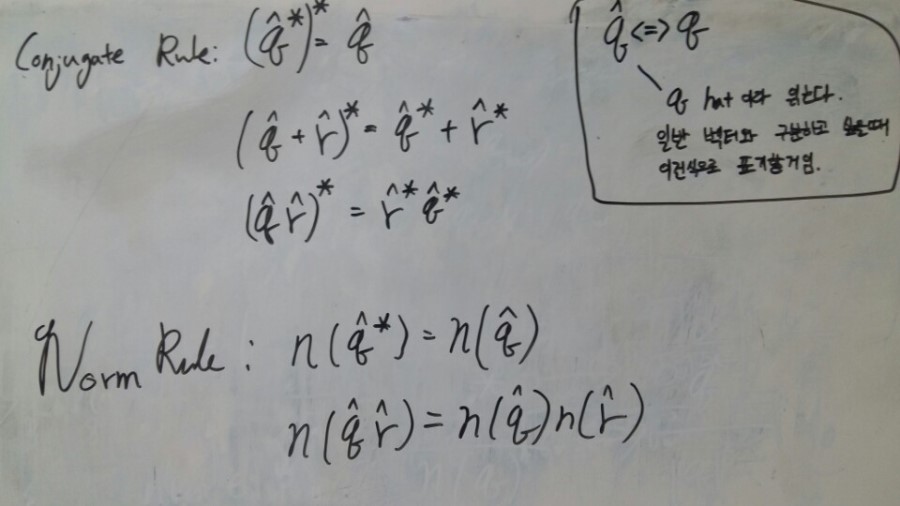 Conjugate Rule: (q̂*)* = q̂
(q̂ + r̂)* = q̂* + r̂*
(q̂ r̂)* = r̂* q̂*
q̂ <=> q
q hat 이라 읽는다.
일반 벡터와 구분하고 싶을때
이런식으로 표기할거임.
Norm Rule : n(q̂*) = n(q̂)
n(q̂ r̂) = n(q̂)n(r̂)